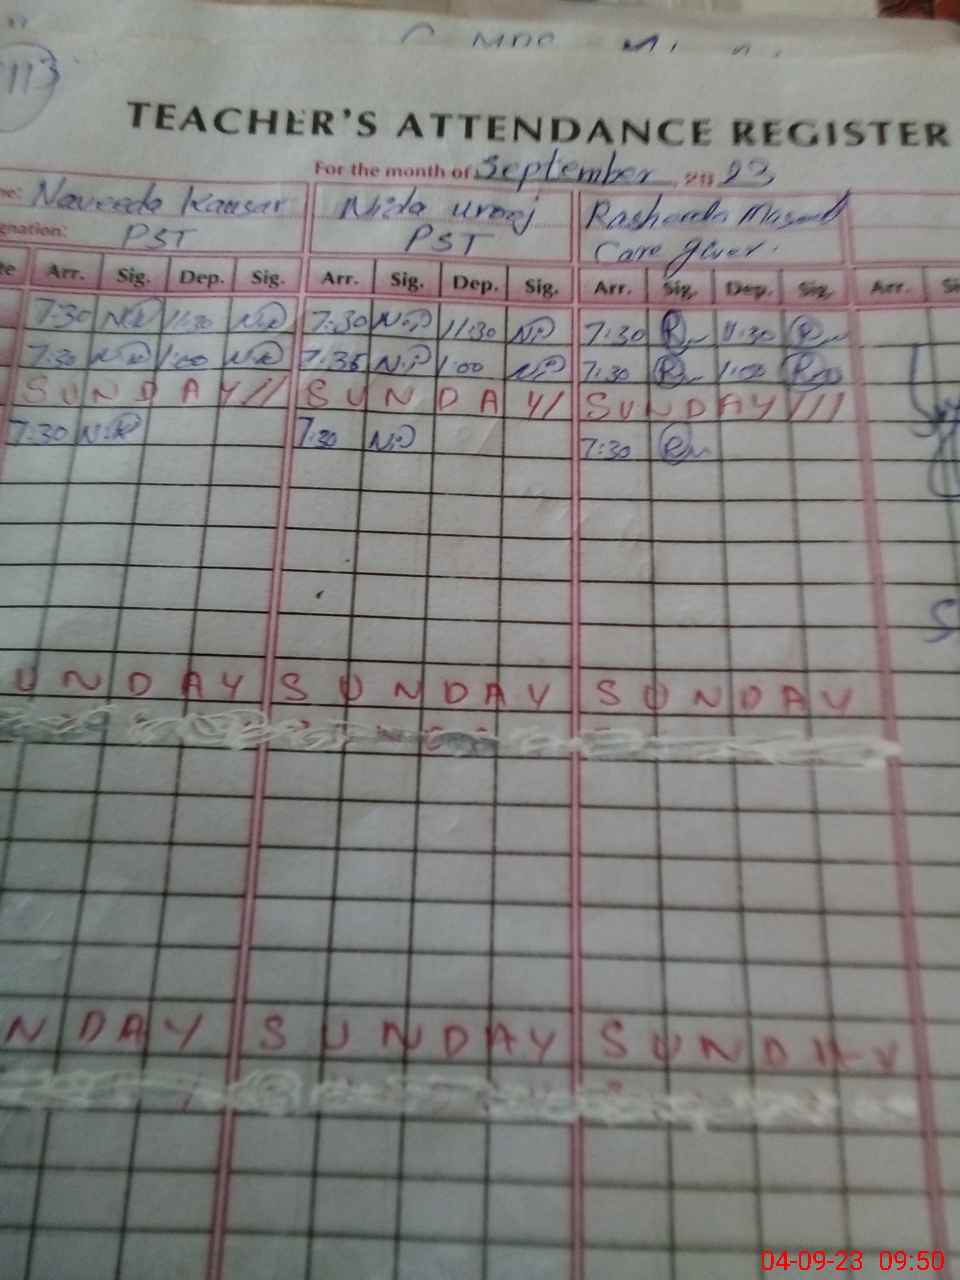 113
TEACHER'S ATTENDANCE REGISTER
For the month of September, 2023
Naveeda Kausar Nida Urooj Rasheeda Masood
PST PST Care giver.
Arr. Sig. Dep. Sig. Arr. Sig. Dep. Sig. Arr. Sig. Dep. Sig. Arr.
7:30 N.K 11:30 N.K 7:30 N.P 11:30 N.P 7:30 11:30
7:30 N.K 1:00 N.K 7:35 N.P 1:00 N.P 7:30 1:00
SUNDAY SUNDAY SUNDAY
7:30 N.K 7:30 N.P 7:30
UNDAY SUNDAY SUNDAY
NDAY SUNDAY SUNDAY
04-09-23 09:50